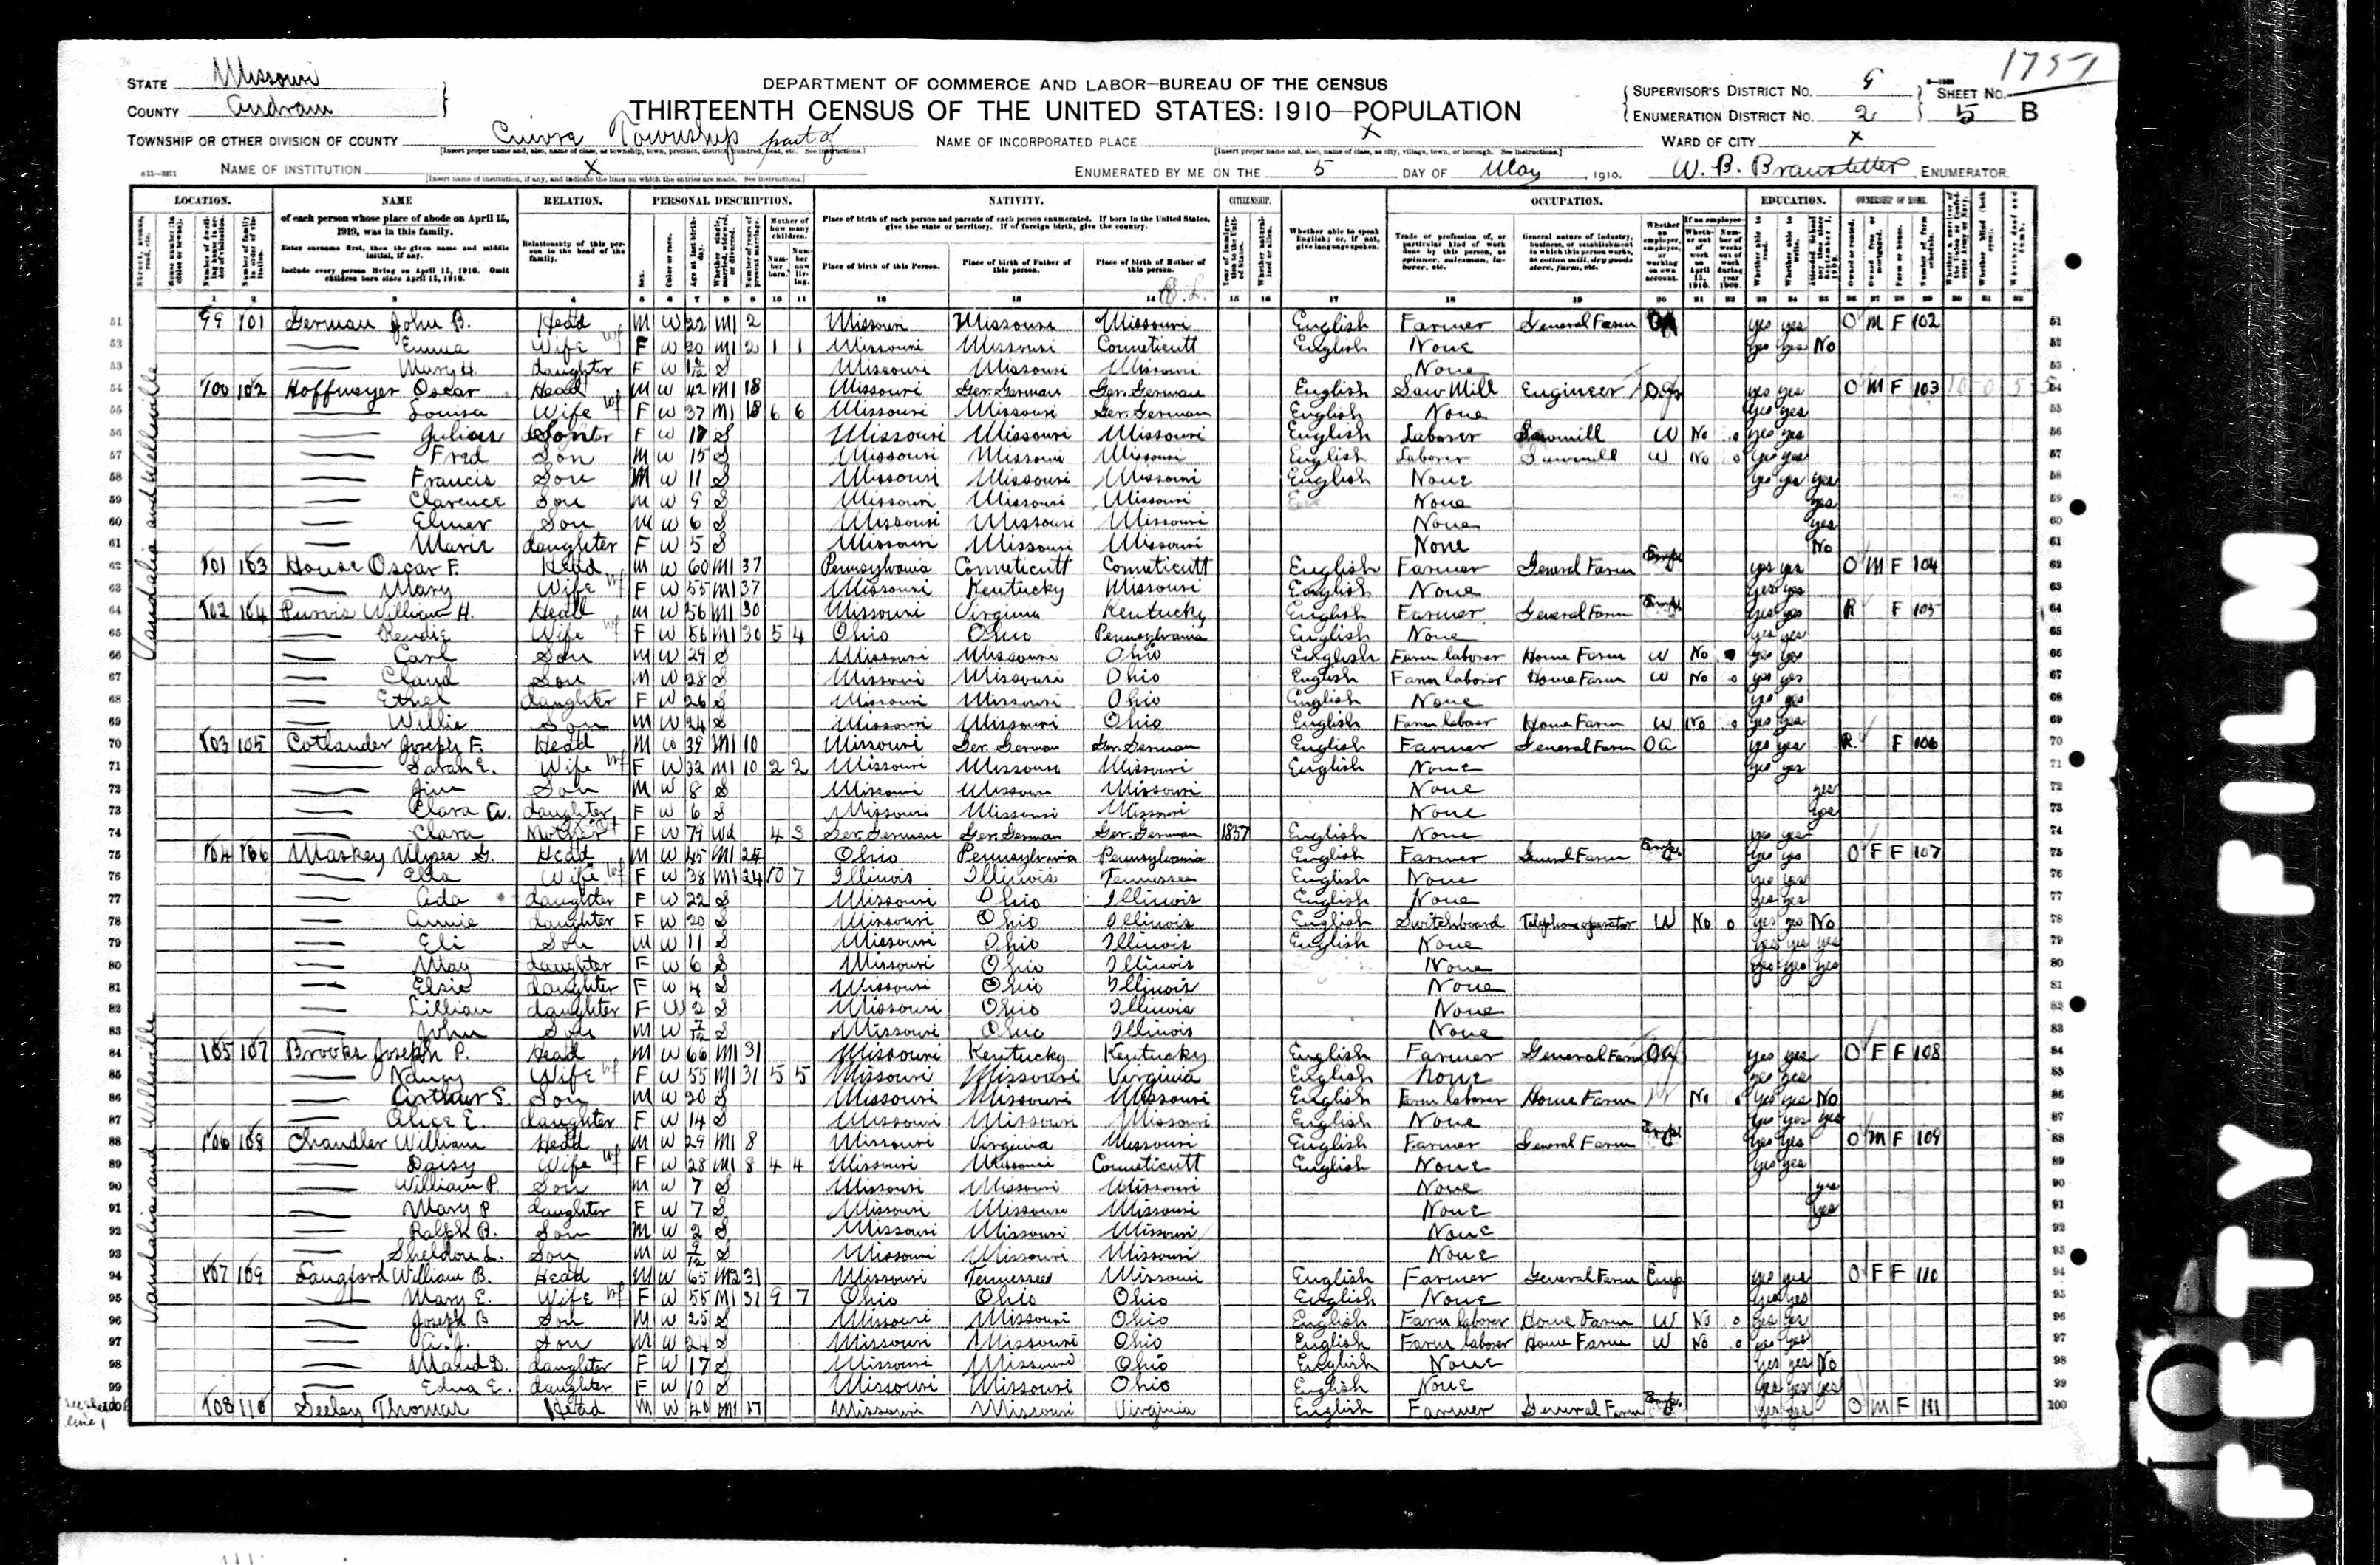 1757
STATE Missouri
COUNTY Audrain
DEPARTMENT OF COMMERCE AND LABOR—BUREAU OF THE CENSUS
THIRTEENTH CENSUS OF THE UNITED STATES: 1910—POPULATION
SUPERVISOR'S DISTRICT NO. 9 SHEET NO.
ENUMERATION DISTRICT NO. 2 5 B
TOWNSHIP OR OTHER DIVISION OF COUNTY Cuivre Township part of NAME OF INCORPORATED PLACE X WARD OF CITY X
NAME OF INSTITUTION X ENUMERATED BY ME ON THE 5 DAY OF May, 1910. W. B. Branstetter ENUMERATOR.
LOCATION. NAME RELATION. PERSONAL DESCRIPTION. NATIVITY. CITIZENSHIP. OCCUPATION. EDUCATION. OWNERSHIP OF HOME.
of each person whose place of abode on April 15, 1910, was in this family.
Enter surname first, then the given name and middle initial, if any.
Include every person living on April 15, 1910. Omit children born since April 15, 1910.
Relationship of this person to the head of the family.
Place of birth of each person and parents of each person enumerated. If born in the United States, give the state or territory. If of foreign birth, give the country.
Place of birth of this Person. Place of birth of Father of this person. Place of birth of Mother of this person.
Whether able to speak English; or, if not, give language spoken.
Vandalia and Wellsville
51 99 101 German John B. Head M W 22 M1 2 Missouri Missouri Missouri English Farmer General Farm OA yes yes O M F 102 51
52 Emma Wife F W 20 M1 2 1 1 Missouri Missouri Conneticutt English None yes yes No 52
53 Mary H. daughter F W S Missouri Missouri Missouri None 53
54 100 102 Hoffmeyer Oscar Head M W 42 M1 18 Missouri Ger. German Ger. German English Saw Mill Engineer yes yes O M F 103 54
55 Louisa Wife F W 37 M1 18 6 6 Missouri Missouri Ger. German English None yes yes 55
56 Julious F W 17 S Missouri Missouri Missouri English Laborer Sawmill W No o yes yes 56
57 Fred Son M W 15 S Missouri Missouri Missouri English Laborer Sawmill W No o yes yes 57
58 Francis Son M W 11 S Missouri Missouri Missouri English None yes yes yes 58
59 Clarence Son M W 9 S Missouri Missouri Missouri None yes 59
60 Elmer Son M W 6 S Missouri Missouri Missouri None yes 60
61 Marie daughter F W 5 S Missouri Missouri Missouri None No 61
62 101 103 House Oscar F. Head M W 60 M1 37 Pennsylvania Conneticutt Conneticutt English Farmer General Farm Emp yes yes O M F 104 62
63 Mary Wife F W 55 M1 37 Missouri Kentucky Missouri English None yes yes 63
64 102 104 Purvis William H. Head M W 56 M1 30 Missouri Virginia Kentucky English Farmer General Farm Emp yes yes R F 105 64
65 Wife F W 56 M1 30 5 4 Ohio Ohio Pennsylvania English None yes yes 65
66 Carl Son M W 29 S Missouri Missouri Ohio English Farm laborer Home Farm W No yes yes 66
67 Claud Son M W 28 S Missouri Missouri Ohio English Farm laborer Home Farm W No o yes yes 67
68 Ethel daughter F W 26 S Missouri Missouri Ohio English None yes yes 68
69 Willie Son M W 24 S Missouri Missouri Ohio English Farm laborer Home Farm W No o yes yes 69
70 103 105 Cotlander Joseph F. Head M W 39 M1 10 Missouri Ger. German Ger. German English Farmer General Farm OA yes yes R F 106 70
71 Sarah E. Wife F W 32 M1 10 2 2 Missouri Missouri Missouri English None yes yes 71
72 Jim Son M W 8 S Missouri Missouri Missouri None yes 72
73 Clara A. daughter F W 6 S Missouri Missouri Missouri None yes 73
74 Clara Mother F W 79 Wd 4 3 Ger. German Ger. German Ger. German 1837 English None yes yes 74
75 104 106 Maskey Ulyses G. Head M W 45 M1 24 Ohio Pennsylvania Pennsylvania English Farmer General Farm Emp yes yes O F F 107 75
76 Ella Wife F W 38 M1 24 10 7 Illinois Illinois Tennessee English None yes yes 76
77 Ada daughter F W 22 S Missouri Ohio Illinois English None yes yes 77
78 Annie daughter F W 20 S Missouri Ohio Illinois English Switchboard Telephone operator W No o yes yes No 78
79 Eli Son M W 11 S Missouri Ohio Illinois English None yes yes yes 79
80 May daughter F W 6 S Missouri Ohio Illinois None yes yes yes 80
81 Elsie daughter F W 4 S Missouri Ohio Illinois None 81
82 Lillian daughter F W 2 S Missouri Ohio Illinois None 82
83 John Son M W 7/12 S Missouri Ohio Illinois None 83
84 105 107 Brooks Joseph P. Head M W 66 M1 31 Missouri Kentucky Kentucky English Farmer General Farm OA yes yes O F F 108 84
85 Nancy Wife F W 55 M1 31 5 5 Missouri Missouri Virginia English None yes yes 85
86 Arthur S. Son M W 20 S Missouri Missouri Missouri English Farm laborer Home Farm W No o yes yes No 86
87 Alice E. daughter F W 14 S Missouri Missouri Missouri English None yes yes yes 87
88 106 108 Chandler William Head M W 29 M1 8 Missouri Virginia Missouri English Farmer General Farm Emp yes yes O M F 109 88
89 Daisy Wife F W 28 M1 8 4 4 Missouri Missouri Conneticutt English None yes yes 89
90 William P. Son M W 7 S Missouri Missouri Missouri None yes 90
91 Mary P daughter F W 7 S Missouri Missouri Missouri None yes 91
92 Ralph B. Son M W 2 S Missouri Missouri Missouri None 92
93 Sheldon L. Son M W S Missouri Missouri Missouri None 93
94 107 109 Langford William B. Head M W 65 M2 31 Missouri Tennessee Missouri English Farmer General Farm Emp yes yes O F F 110 94
95 Mary E. Wife F W 55 M1 31 9 7 Ohio Ohio Ohio English None yes yes 95
96 Joseph B Son M W 25 S Missouri Missouri Ohio English Farm laborer Home Farm W No o yes yes 96
97 A. J. Son M W 24 S Missouri Missouri Ohio English Farm laborer Home Farm W No o yes yes 97
98 Maud D. daughter F W 17 S Missouri Missouri Ohio English None yes yes No 98
99 Edna E. daughter F W 10 S Missouri Missouri Ohio English None yes yes yes 99
100 108 110 Seeley Thomas Head M W 40 M1 17 Missouri Missouri Virginia English Farmer General Farm Emp yes yes O M F 111 100
Vandalia and Wellsville
line 1
FETY FILM